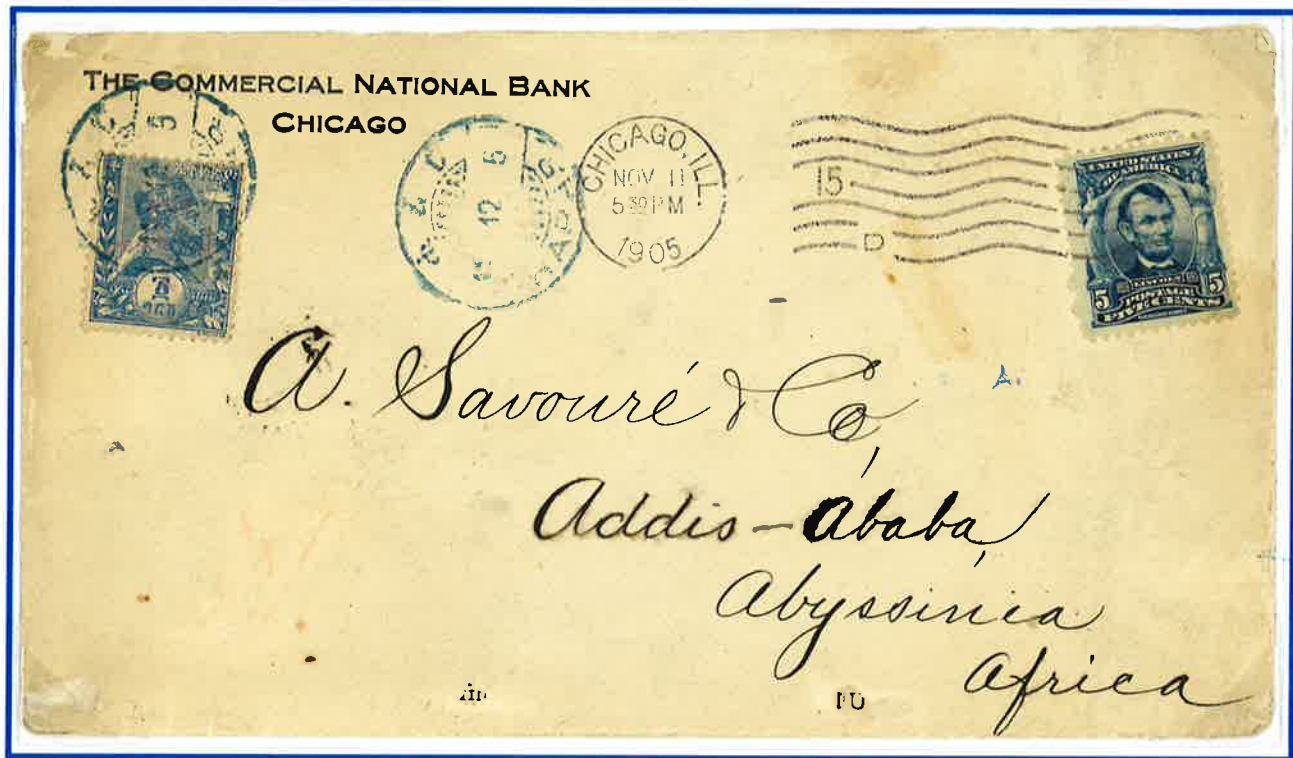 THE COMMERCIAL NATIONAL BANK
CHICAGO
CHICAGO, ILL.
NOV 11
5 30 PM
1905
15
D
12
5
5
UNITED STATES
OF AMERICA
5 5
POSTAGE
FIVE CENTS
A. Savouré & Co,
Addis-Ababa,
Abyssinia
Africa